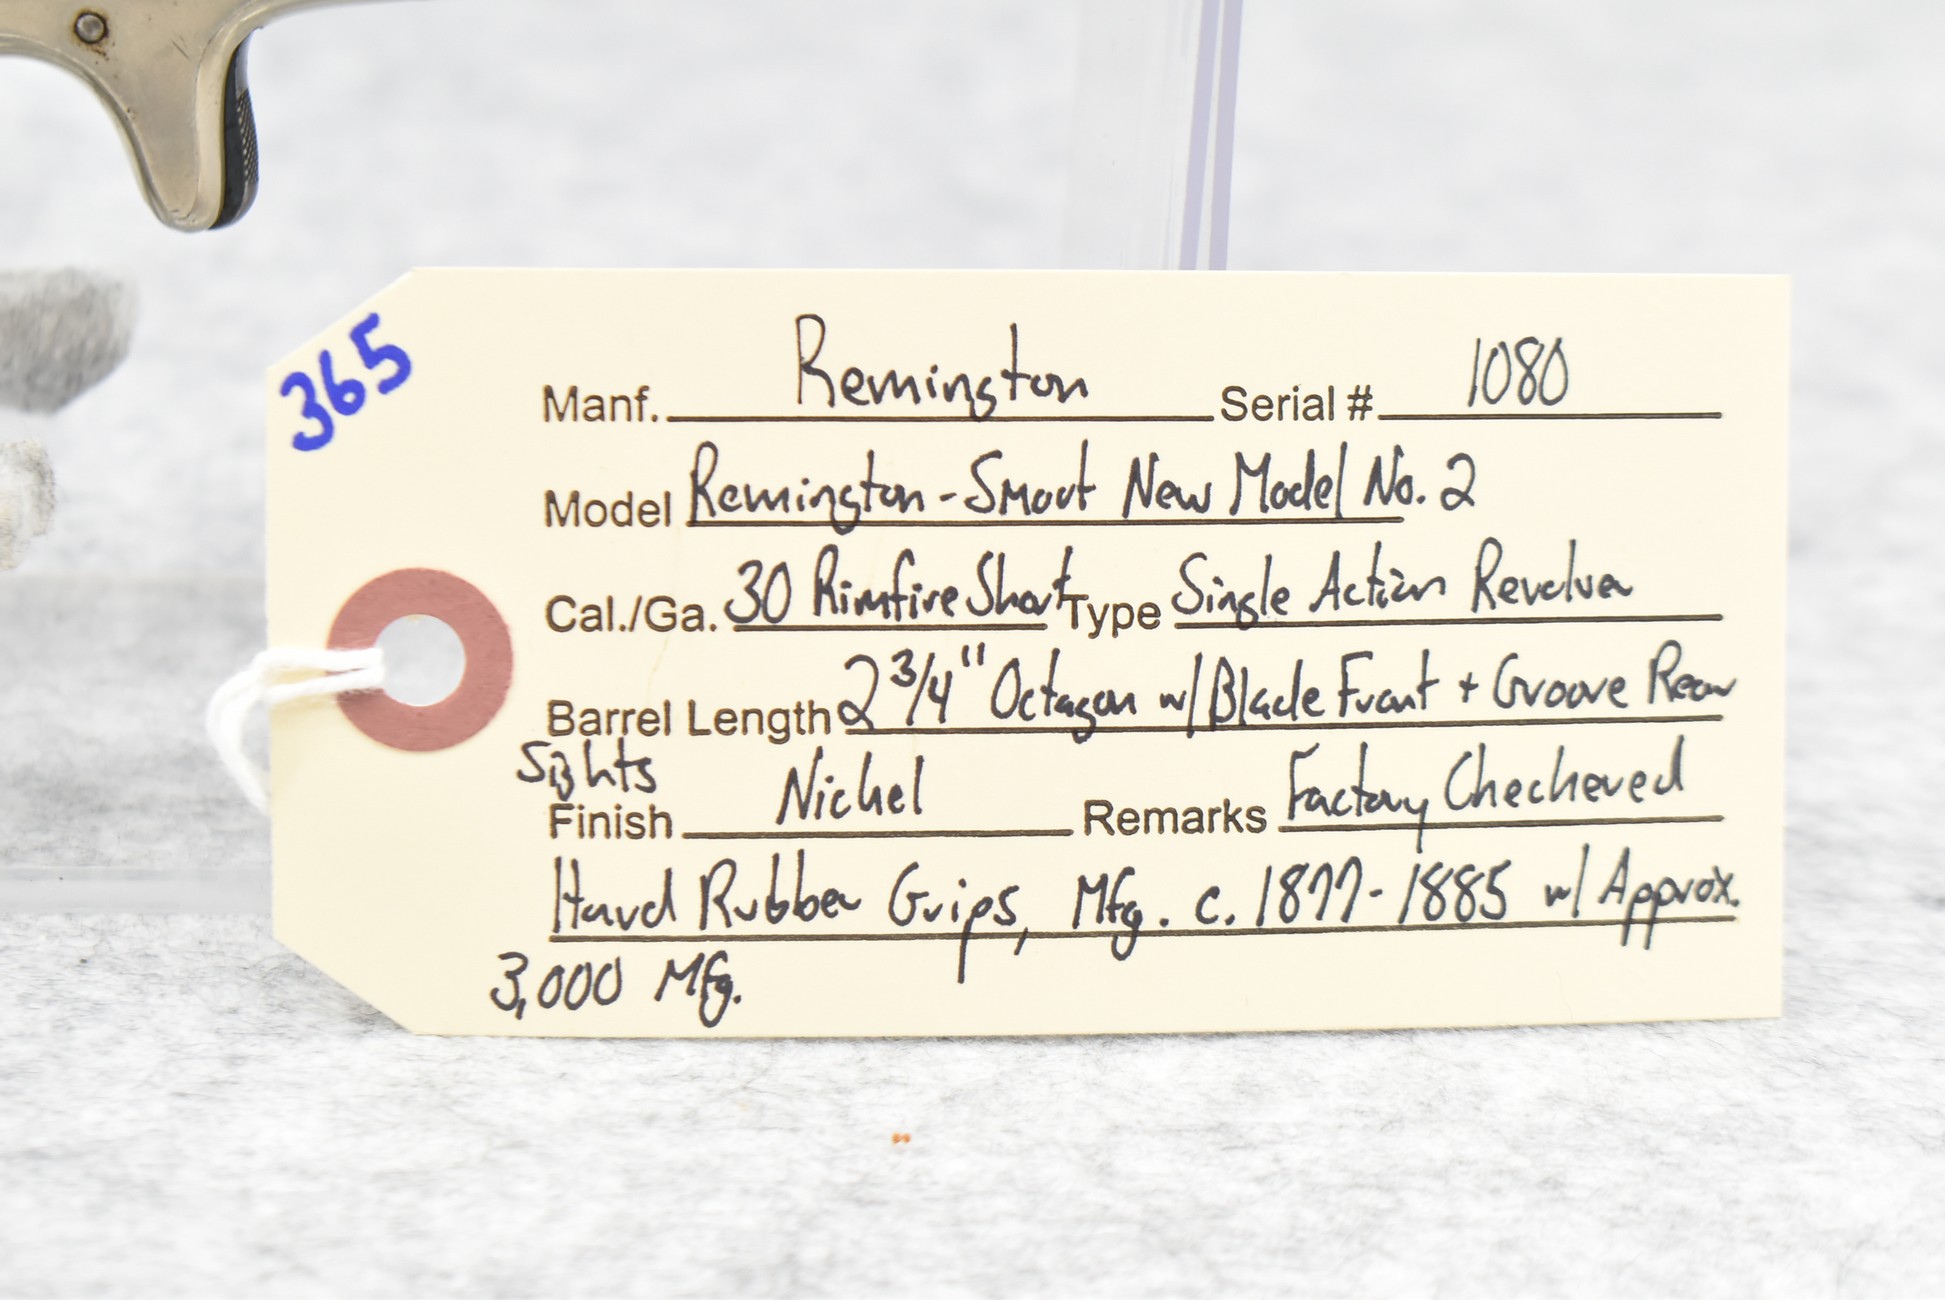 365
Manf. Remington Serial # 1080
Model Remington-Smoot New Model No. 2
Cal./Ga. 30 Rimfire Short Type Single Action Revolver
Barrel Length 2 3/4" Octagon w/ Blade Front + Groove Rear
Sights
Finish Nickel Remarks Factory Checkered
Hard Rubber Grips, Mfg. c. 1877-1885 w/ Approx.
3,000 Mfg.